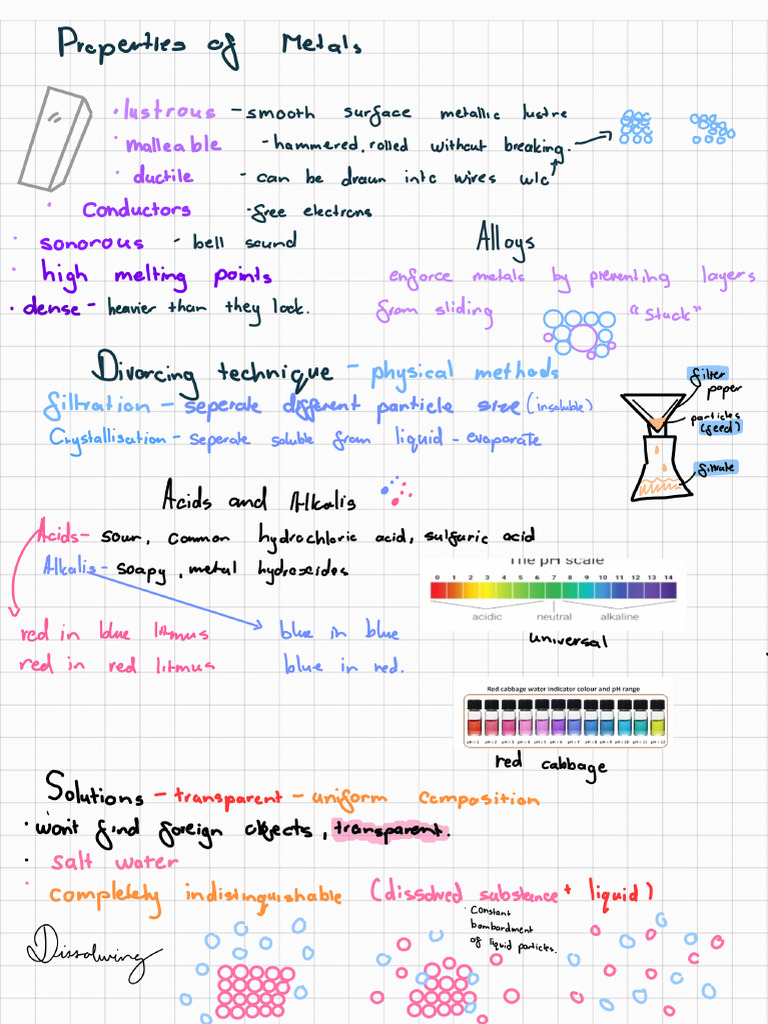 Properties of Metals
• lustrous - smooth surface metallic lustre
• malleable - hammered, rolled without breaking.
• ductile - can be drawn into wires w/o
• Conductors - free electrons
• sonorous - bell sound
Alloys
• high melting points
enforce metals by preventing layers
from sliding
"stuck"
• dense - heavier than they look.
Divorcing technique - physical methods
filtration - seperate different particle size (insoluble)
Crystallisation - seperate soluble from liquid - evaporate
filter
paper
particles
(feed)
filtrate
Acids and Alkalis
Acids - sour, common hydrochloric acid, sulfuric acid
Alkalis - soapy, metal hydroxides
red in blue litmus
red in red litmus
blue in blue
blue in red.
The pH scale
0 1 2 3 4 5 6 7 8 9 10 11 12 13 14
acidic neutral alkaline
universal
Red cabbage water indicator colour and pH range
red cabbage
Solutions - transparent - uniform composition
• won't find foreign objects, transparent.
• salt water
• completely indistinguishable (dissolved substance + liquid)
• Constant
bombardment
of liquid particles.
Dissolving